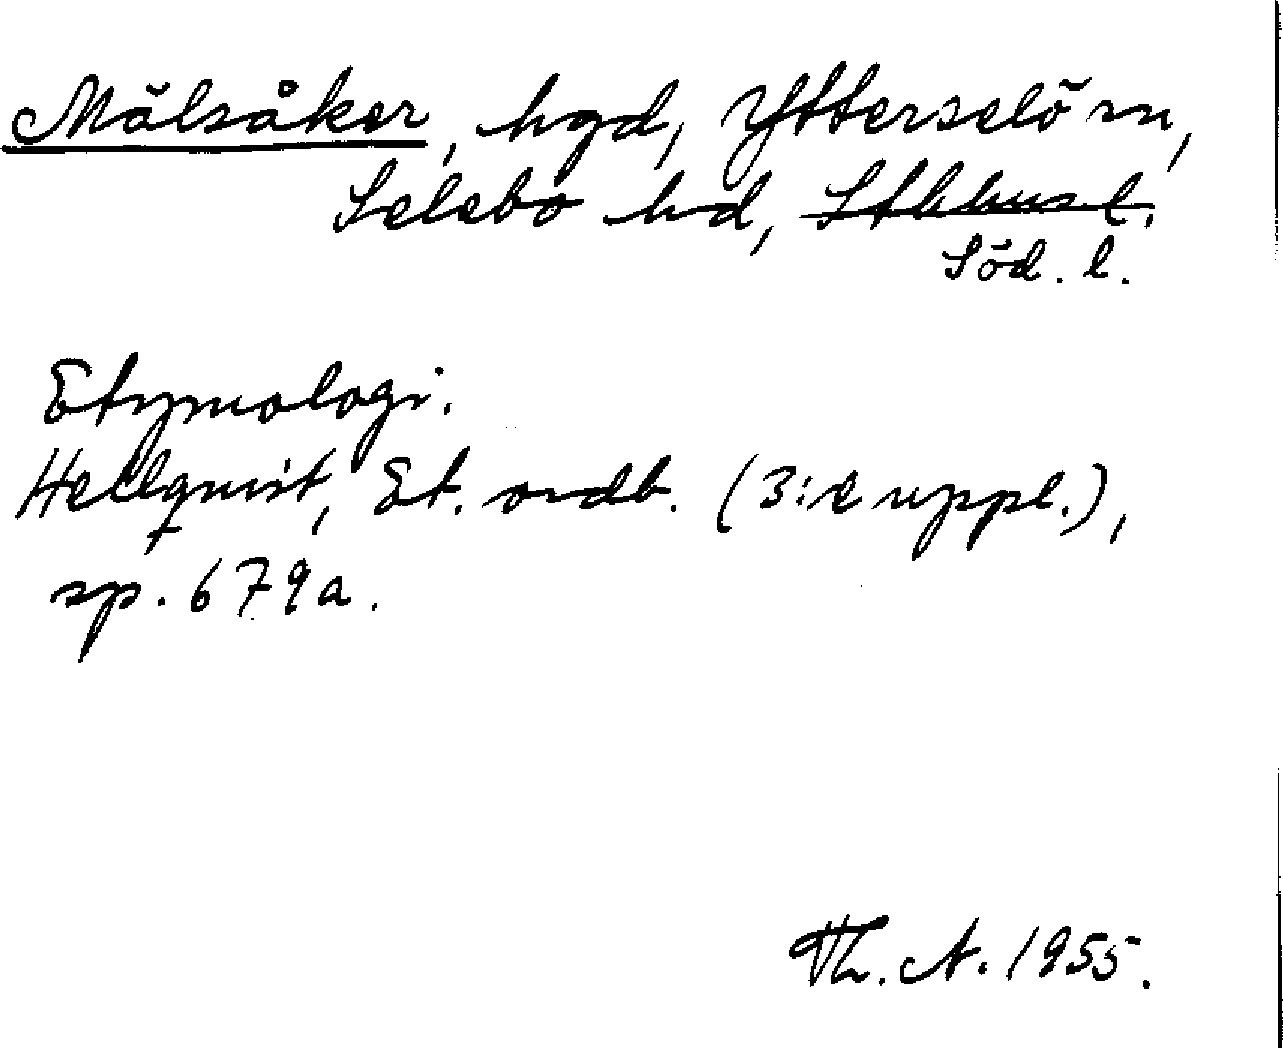 Mälsåker, hgd, Ytterselö sn,
Selebo hd, Sthhus l.
Söd. l.
Etymologi.
Hellquist, Et. ordb. (3:e uppl.),
sp. 679a.
Th. A. 1955.